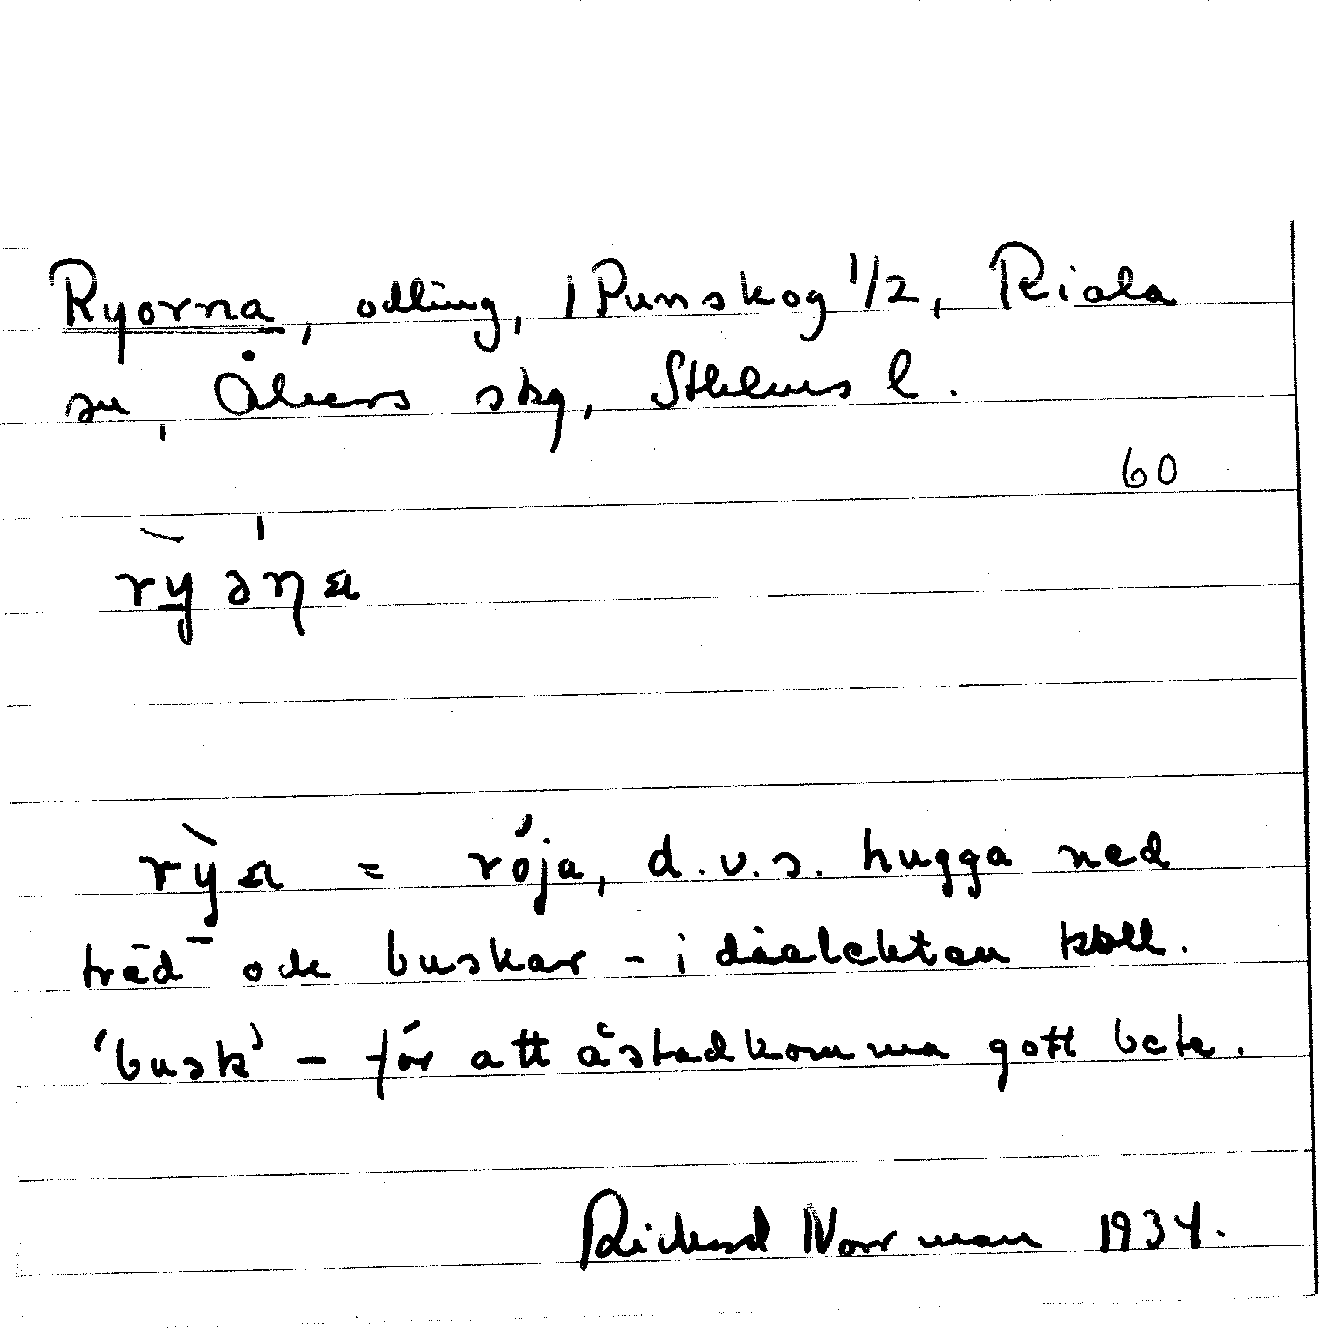 Ryorna, odling, i Punskog 1/2, Riala
sn, Åkers skg, Sthlms l.
60
rỳəɳa
rỳa = röja, d.v.s. hugga ned
träd och buskar - i dialekten koll.
'busk' - för att åstadkomma gott bete.
Rickard Norrman 1934.